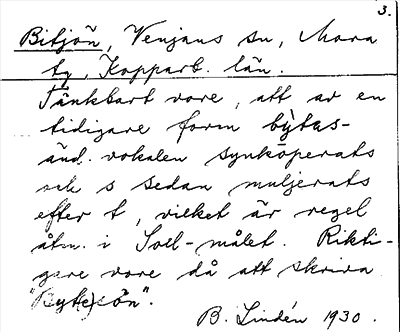 3.
Bitjön, Venjans sn, Mora
tg, Kopparb. län.
Tänkbart vore, att av en
tidigare form bỳtas-
änd. vokalen synkoperats
och s sedan muljerats
efter t, vilket är regel
åtm. i Soll-målet. Rikti-
gare vore då att skriva
"Byte(s)ön".
B. Lindén 1930.